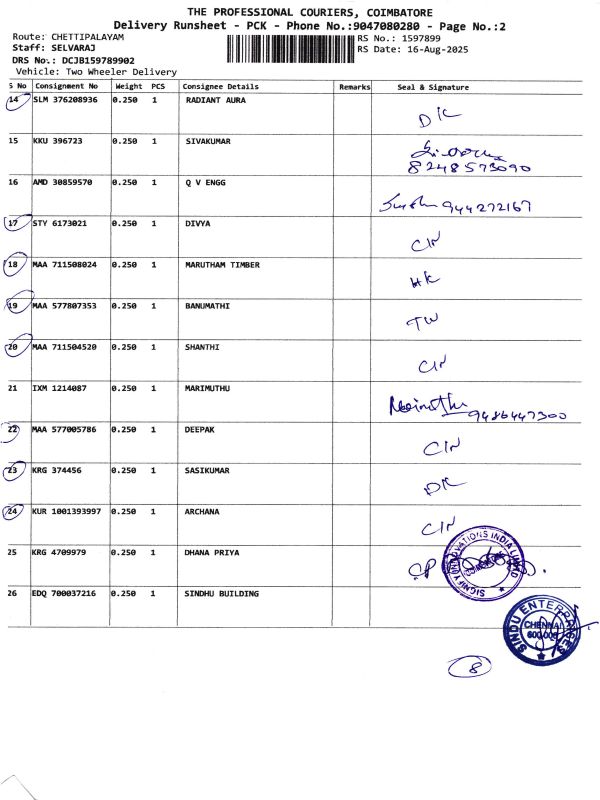 THE PROFESSIONAL COURIERS, COIMBATORE
Delivery Runsheet - PCK - Phone No.:9047080280 - Page No.:2
Route: CHETTIPALAYAM RS No.: 1597899
Staff: SELVARAJ RS Date: 16-Aug-2025
DRS No.: DCJB159789902
Vehicle: Two Wheeler Delivery
S No Consignment No Weight PCS Consignee Details Remarks Seal & Signature
14 SLM 376208936 0.250 1 RADIANT AURA
DK
15 KKU 396723 0.250 1 SIVAKUMAR
8248573090
16 AMD 30859570 0.250 1 Q V ENGG
944272167
17 STY 6173021 0.250 1 DIVYA
CIN
18 MAA 711508024 0.250 1 MARUTHAM TIMBER
HK
19 MAA 577807353 0.250 1 BANUMATHI
TW
20 MAA 711504520 0.250 1 SHANTHI
CIN
21 IXM 1214087 0.250 1 MARIMUTHU
9486447300
22 MAA 577005786 0.250 1 DEEPAK
CIN
23 KRG 374456 0.250 1 SASIKUMAR
DK
24 KUR 1001393997 0.250 1 ARCHANA
CIN
25 KRG 4709979 0.250 1 DHANA PRIYA
CP
SIGNIFY INNOVATIONS INDIA LIMITED
26 EDQ 700037216 0.250 1 SINDHU BUILDING
SINDU ENTERPRICES
CHENNAI
600 008
8